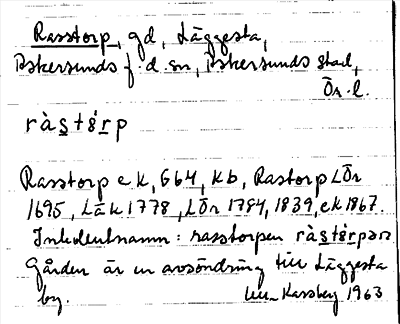 Rasstorp, gd, Läggesta,
Askersunds f. d. sn, Askersunds stad,
Ör. l.
ràsts̀rp
Rasstorp ek, G64, Kb, Rastorp LÖr
1695, Läk 1778, LÖr 1784, 1839, ek 1867.
Inbolentnamn: rasstorpen
Gården är en avsöndring till Läggesta
by. Karsberg 1963